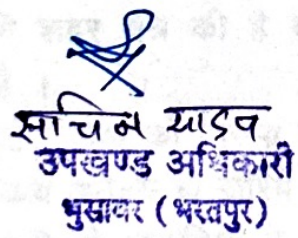 सचिन यादव
उपखण्ड अधिकारी
भुसावर (भरतपुर)